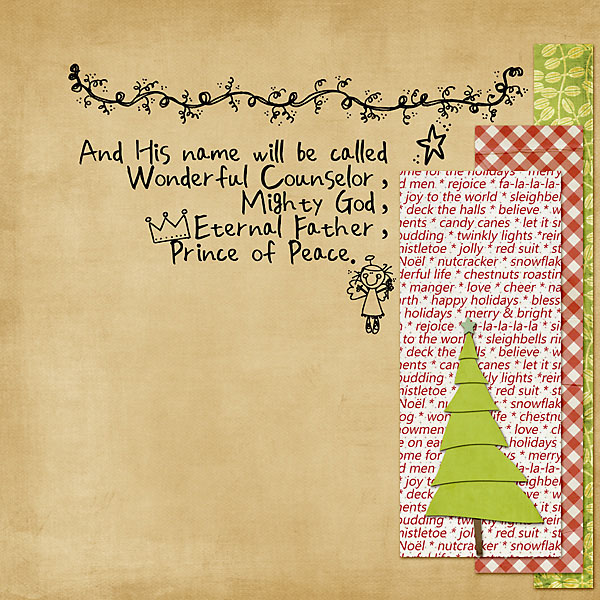 And His name will be called
Wonderful Counselor,
Mighty God,
Eternal Father,
Prince of Peace.
me for the holidays * merry
d men * rejoice * fa-la-la-la-
* joy to the world * sleighbel
* deck the halls * believe * w
ents * candy canes * let it sn
pudding * twinkly lights *rein
mistletoe * jolly * red suit * st
Noël * nutcracker * snowflak
derful life * chestnuts roastin
* manger * love * cheer * na
arth * happy holidays * bless
holidays * merry & bright *
* rejoice * fa-la-la-la-la * si
to the world * sleighbells rin
* deck the halls * believe * w
ents * candy canes * let it sn
pudding * twinkly lights *rein
mistletoe * jolly * red suit * st
Noël * nu * snowflak
og * won life * chestnu
owmen * love * ch
e on ea holidays
ome for * merry
d men * la-la-la-
* joy to sleighbel
* deck * w
ents it sn
pudding * twinkly lights *rein
mistletoe * jolly * red suit * st
Noël * nutcracker * snowflak